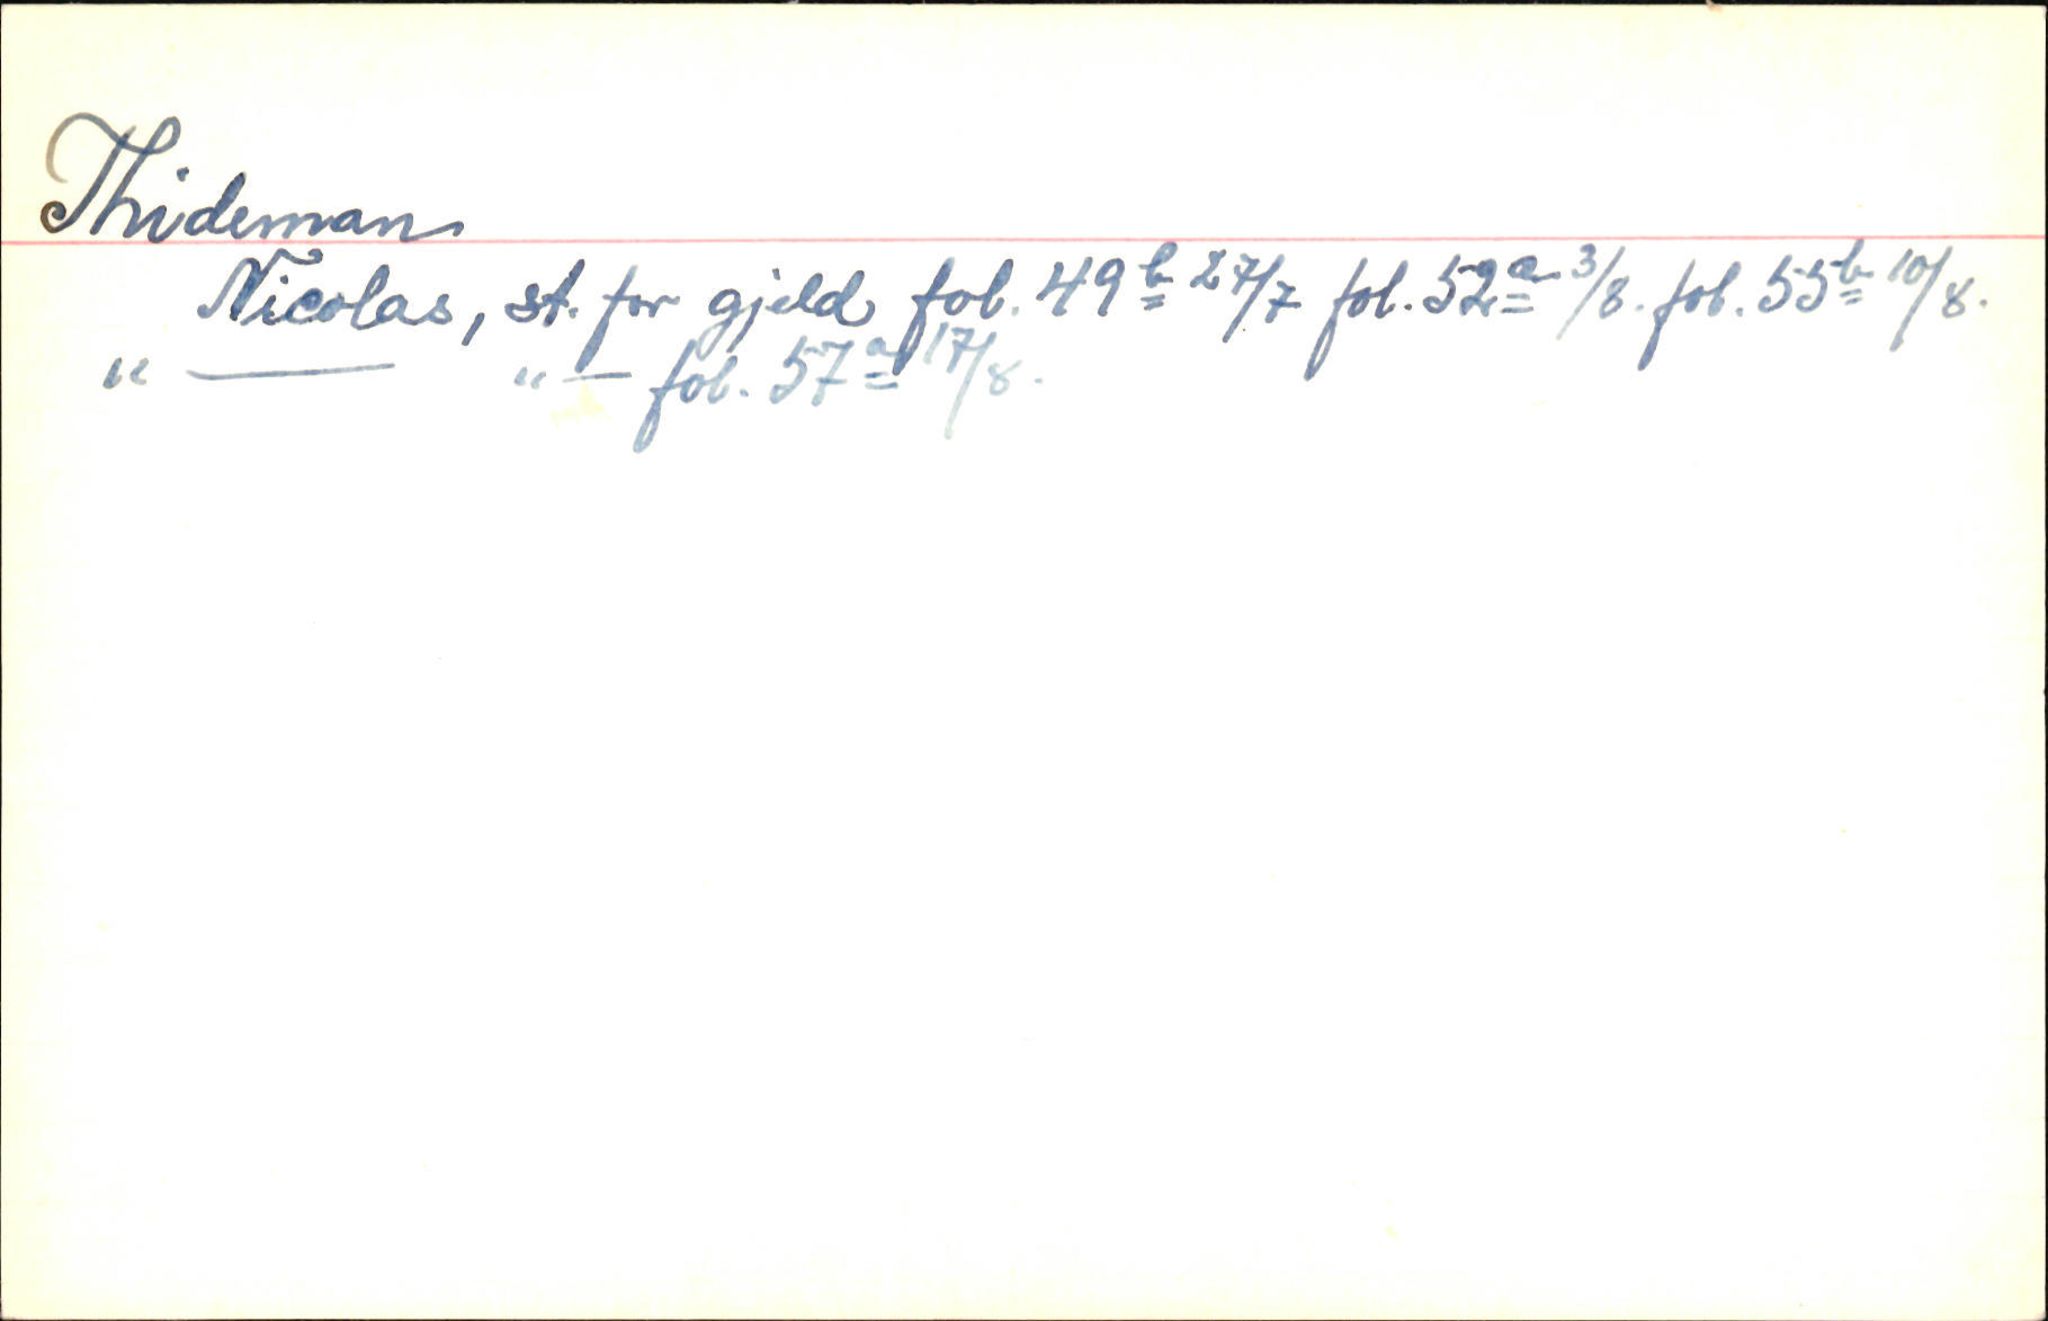 Thideman
Nicolas, st. for gjeld fol. 49b 27/7 fol. 52a 3/8. fol. 55b 10/8.
" — " — fol. 57a 17/8.